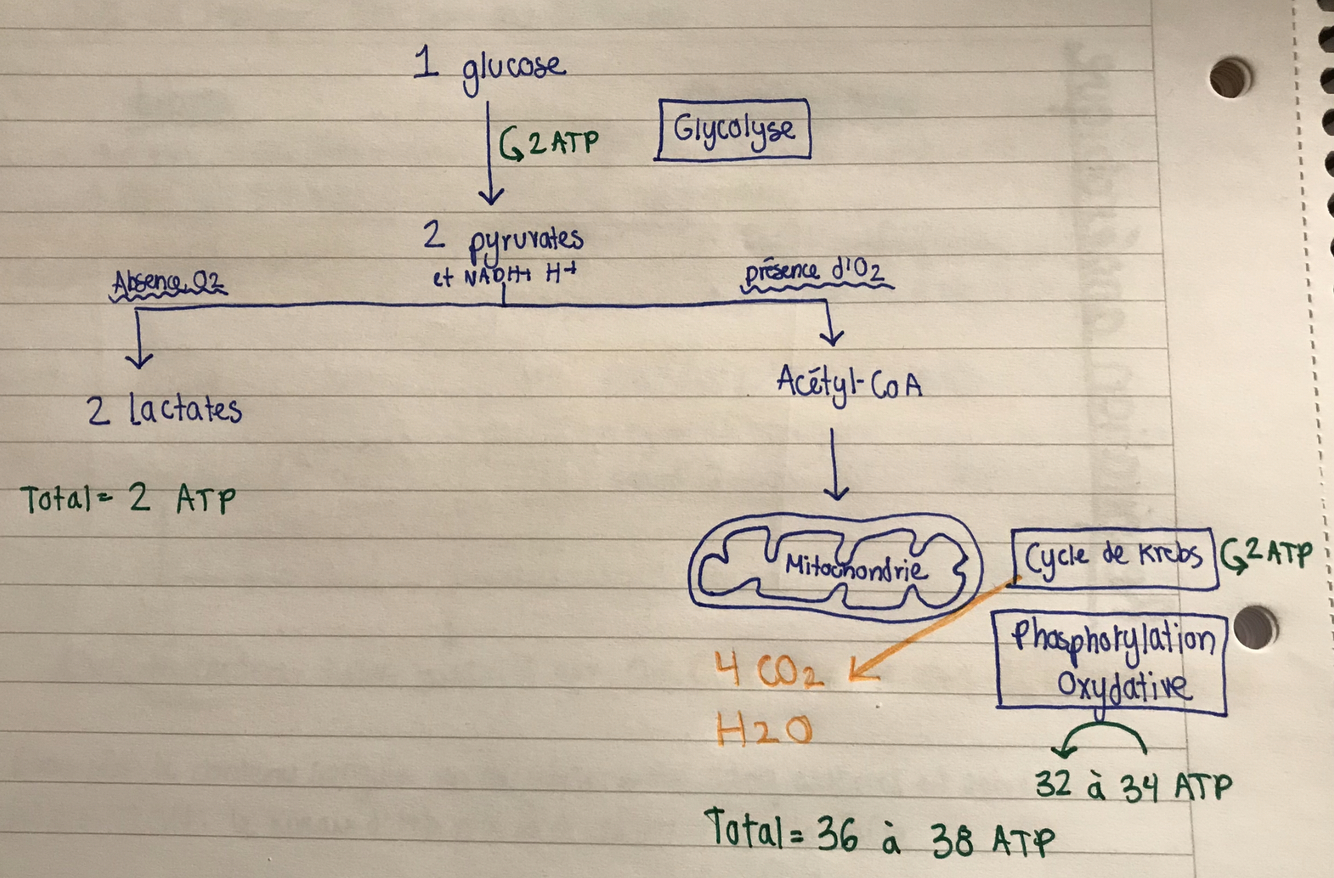 1 glucose
2 ATP
Glycolyse
2 pyruvates
et NADH+ H+
Absence O2
présence d'O2
2 Lactates
Acétyl-CoA
Total= 2 ATP
Mitochondrie
Cycle de Krebs
2 ATP
Phosphorylation
Oxydative
4 CO2
H2O
32 à 34 ATP
Total= 36 à 38 ATP